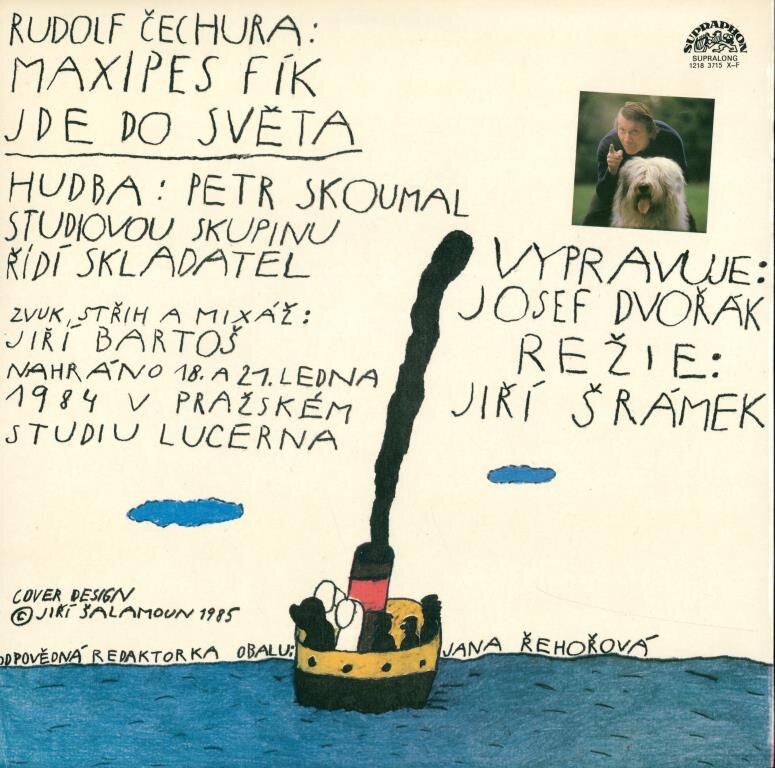 RUDOLF ČECHURA:
MAXIPES FÍK
JDE DO SVĚTA
HUDBA: PETR SKOUMAL
STUDIOVOU SKUPINU
ŘÍDÍ SKLADATEL
ZVUK, STŘIH A MIXÁŽ:
JIŘÍ BARTOŠ
NAHRÁNO 18. A 21. LEDNA
1984 V PRAŽSKÉM
STUDIU LUCERNA
SUPRAPHON
SUPRALONG
1218 3715 X–F
VYPRAVUJE:
JOSEF DVOŘÁK
REŽIE:
JIŘÍ ŠRÁMEK
COVER DESIGN
© JIŘÍ ŠALAMOUN 1985
ODPOVĚDNÁ REDAKTORKA OBALU: JANA ŘEHOŘOVÁ